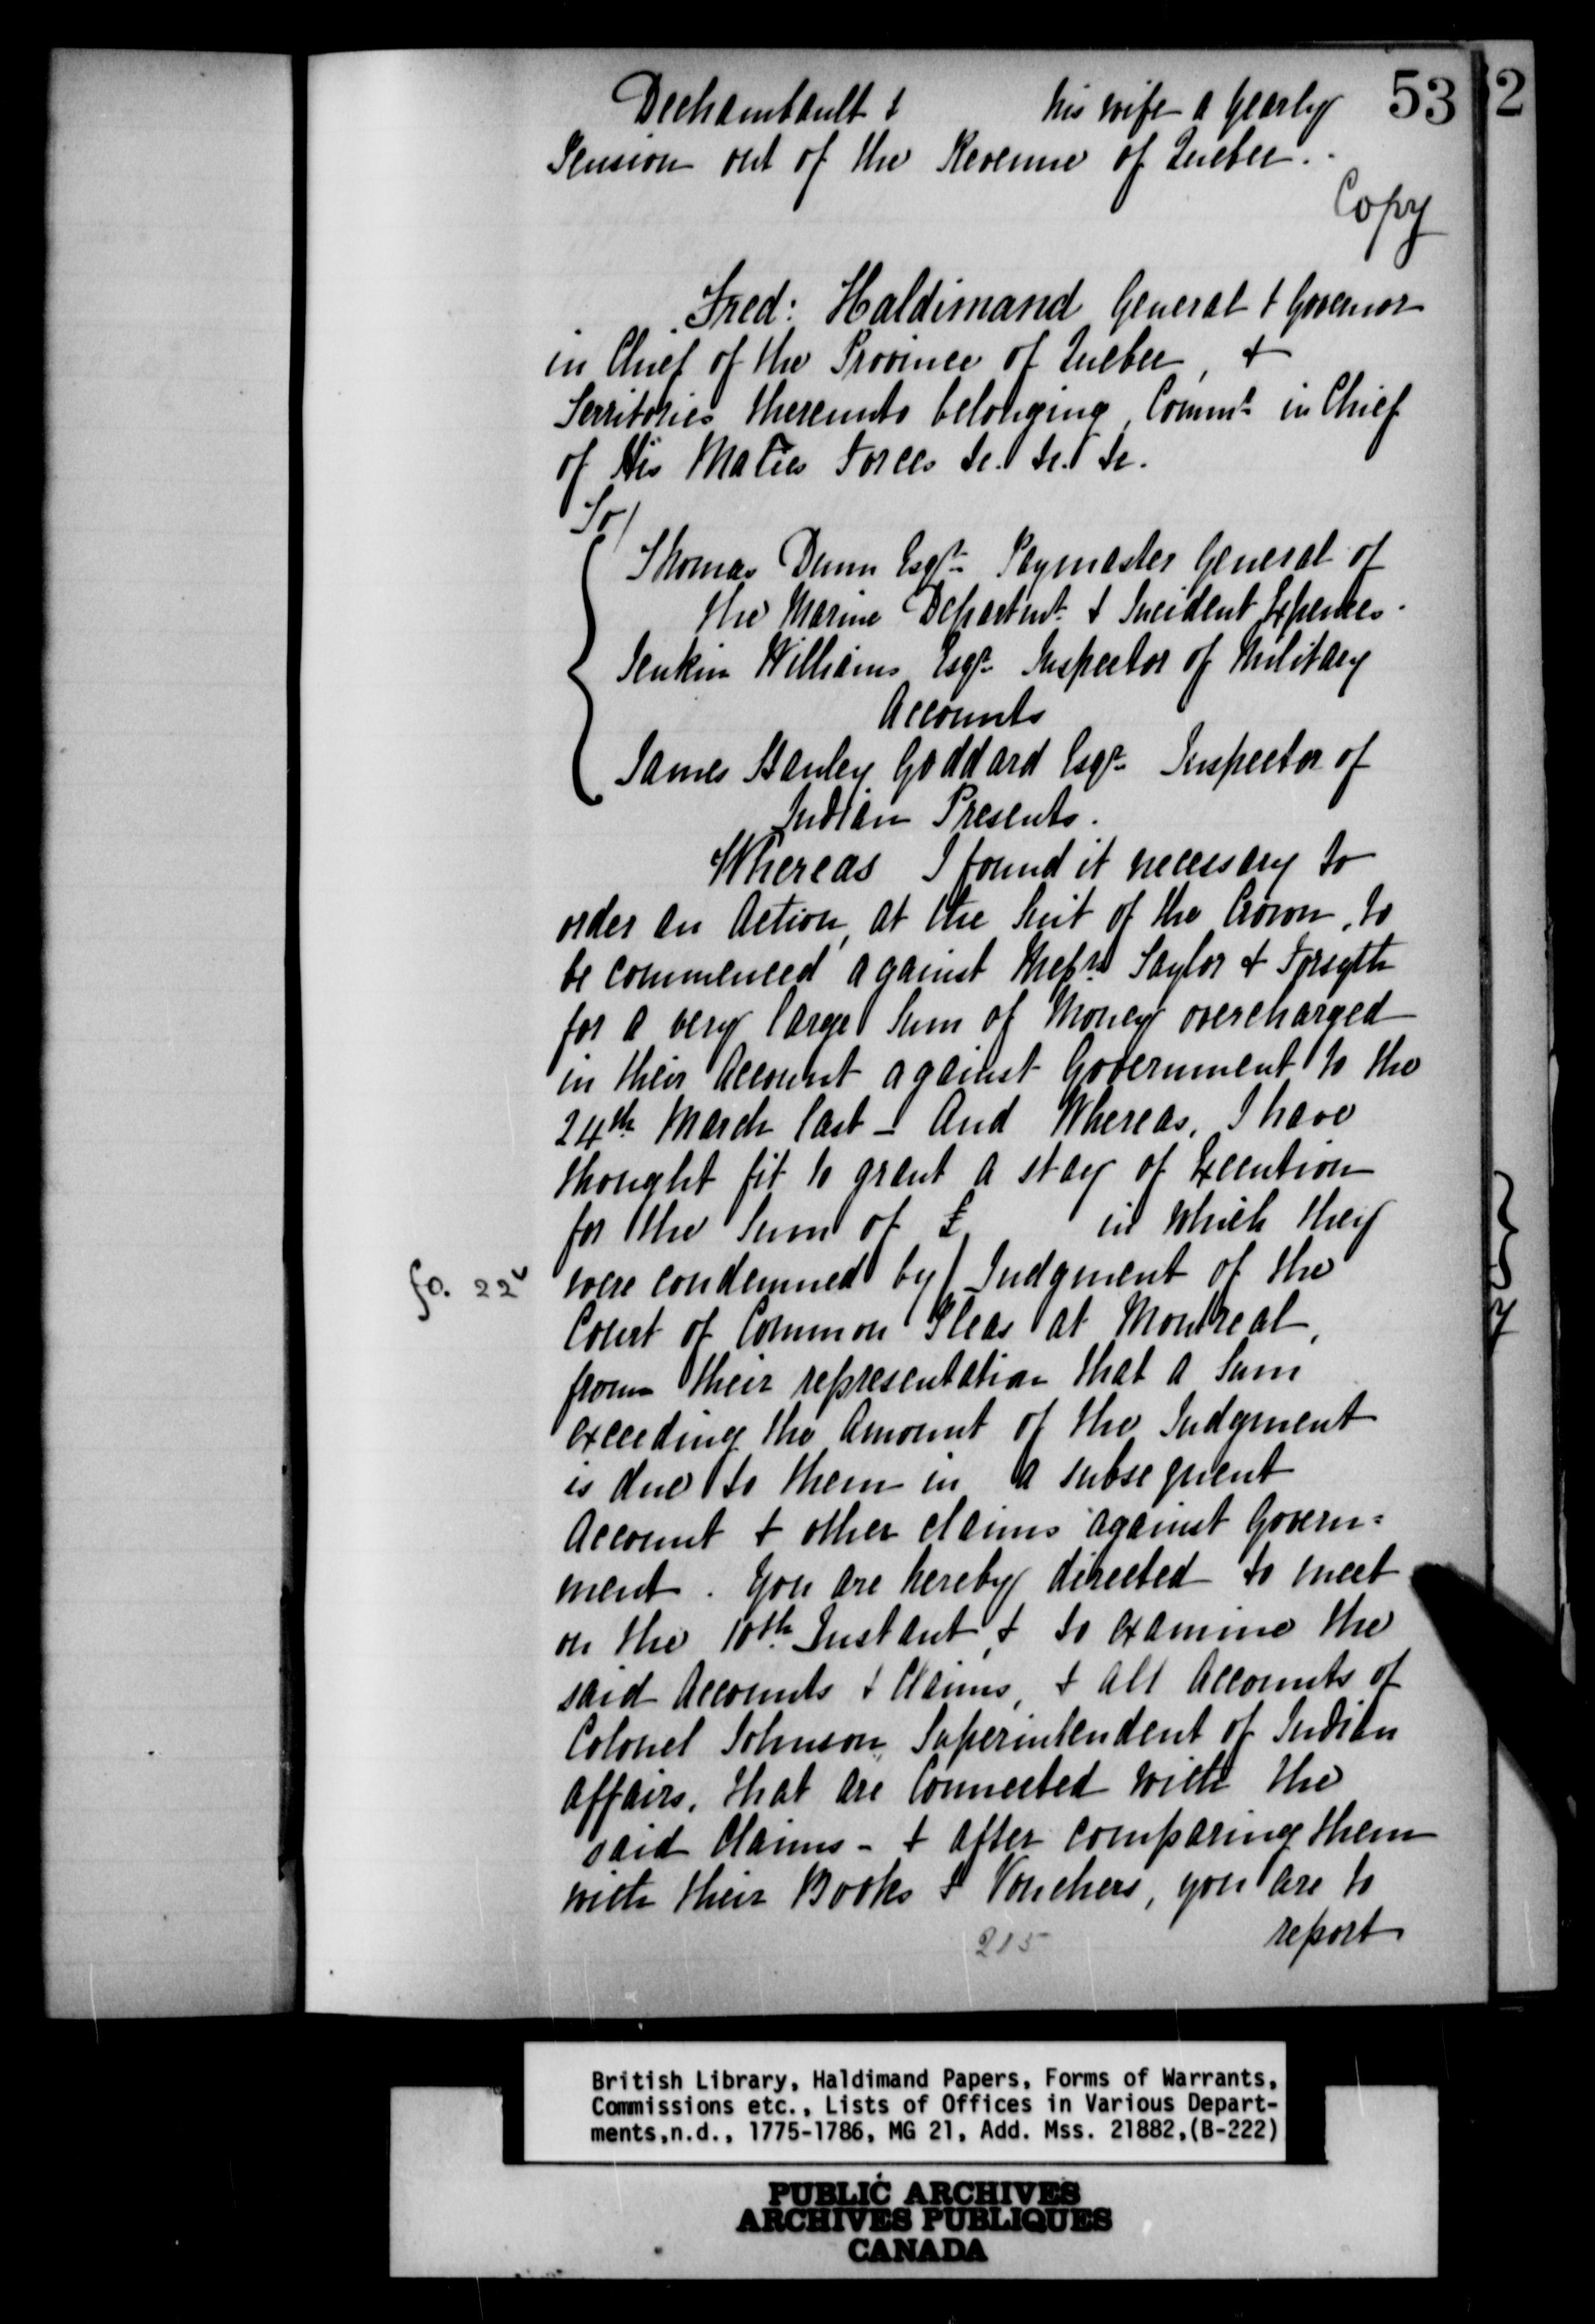 53
2
Dechambault & his wife a yearly
Pension out of the Revenue of Quebec.
Copy
Fred: Haldimand General & Governor
in Chief of the Province of Quebec, &
Territories thereunto belonging, Commr in Chief
of His Maties Forces &c. &c. &c.
To/
Thomas Dunn Esqr Paymaster General of
the Marine Departmt & Incident Expences.
Jenkin Williams Esqr Inspector of Military
Accounts
James Stanley Goddard Esqr Inspector of
Indian Presents.
Whereas I found it necessary to
order an Action, at the Suit of the Crown, to
be commenced against Messrs Taylor & Forsyth
for a very large Sum of Money overcharged
in their Account against Government to the
24th March last - And Whereas, I have
thought fit to grant a stay of Execution
for the Sum of £ in which they
fo. 22v
were condemned by Judgment of the
Court of Common Pleas at Montreal,
from their representation that a Sum
exceeding the Amount of the Judgment
is due to them in a subsequent
Account & other claims against Govern=
ment. You are hereby directed to meet
on the 10th Instant, & to examine the
said Accounts & Claims, & all Accounts of
Colonel Johnson Superintendent of Indian
affairs, that are Connected with the
said Claims - & after comparing them
with their Books & Vouchers, you are to
report
215
British Library, Haldimand Papers, Forms of Warrants,
Commissions etc., Lists of Offices in Various Depart-
ments,n.d., 1775-1786, MG 21, Add. Mss. 21882,(B-222)
PUBLIC ARCHIVES
ARCHIVES PUBLIQUES
CANADA